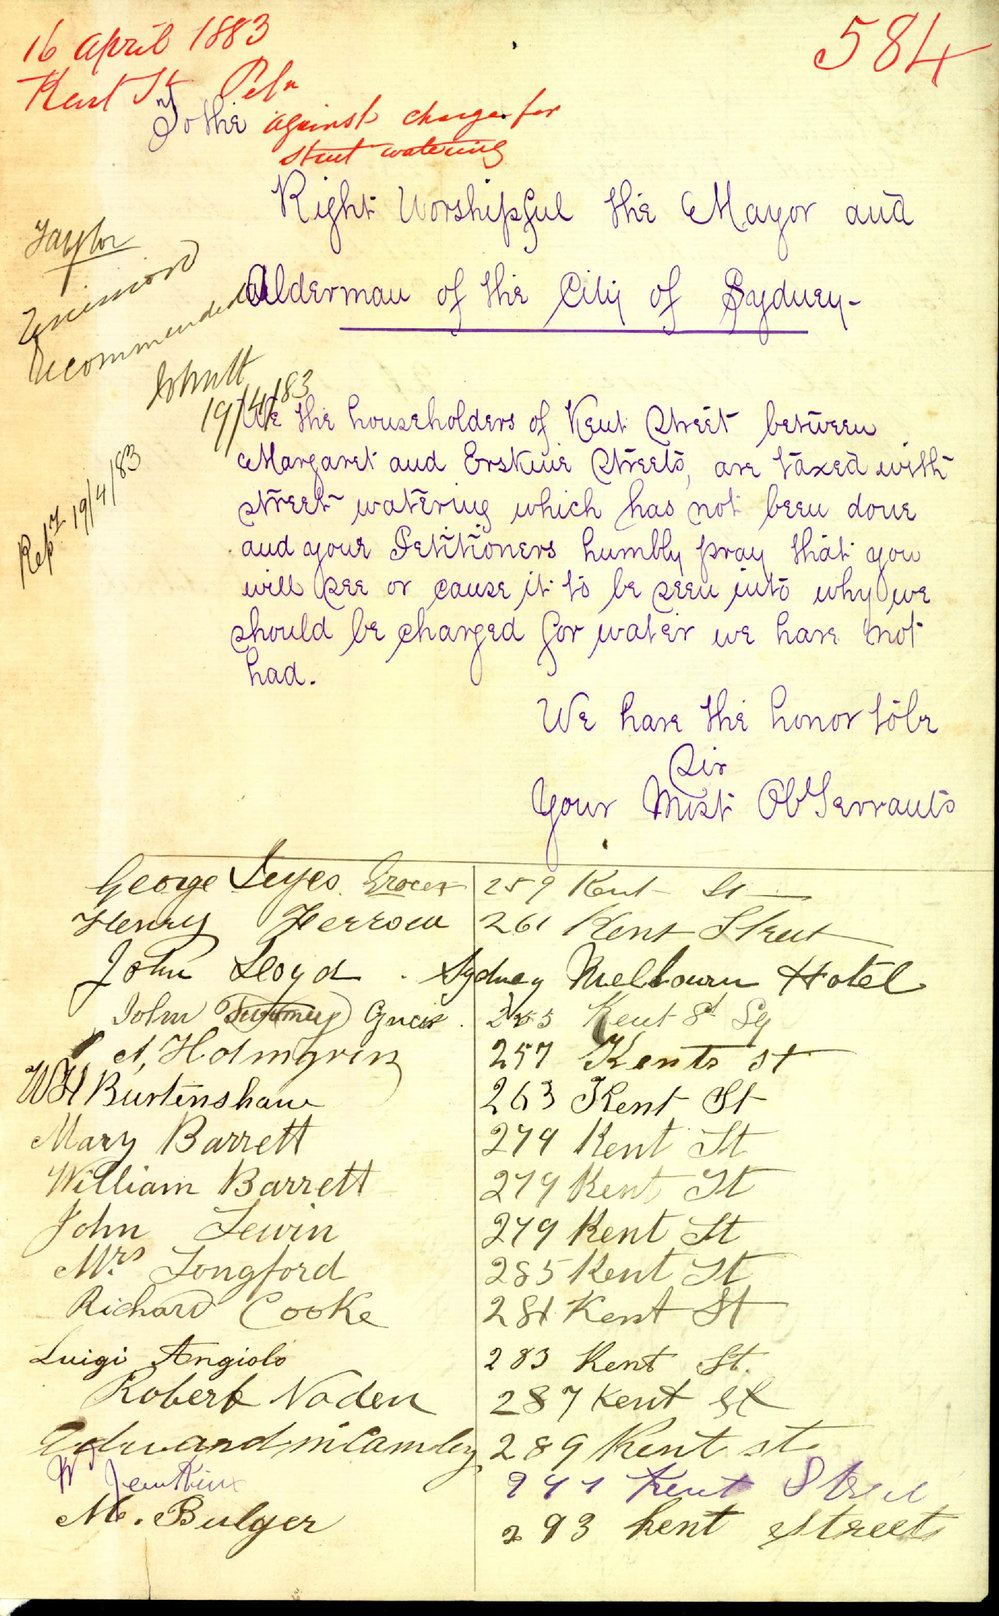 16 April 1883
584
Kent St Petn
To the
against charge for
street watering
Right Worshipful the Mayor and
Alderman of the City of Sydney-
Taylor
Remission
recommended
19/4/83
Rept 19/4/83
We the householders of Kent Street between
Margaret and Erskine Streets, are taxed with
street watering which has not been done
and your Petitioners humbly pray that you
will see or cause it to be seen into why we
should be charged for water we have not
had.
We have the honor to be
Sir
Your Most Ob Servants
George Ieyes Grocer 259 Kent St
Henry Ferrow 261 Kent Street
John Lloyd. Sydney Melbourn Hotel
John Grocer. Kent St Sy
A, Holmgren 257 Kents st
W H Burtenshaw 263 Kent St
Mary Barrett 279 Kent St
William Barrett 279 Kent St
John Lewin 279 Kent St
Mrs Longford 285 Kent St
Richard Cooke 281 Kent St
Luigi Angiolo 283 Kent St.
Robert Naden 287 Kent St
Edward McCamley 289 Kent st
W Jenkins Kent Street
M. Bulger 293 Kent Street